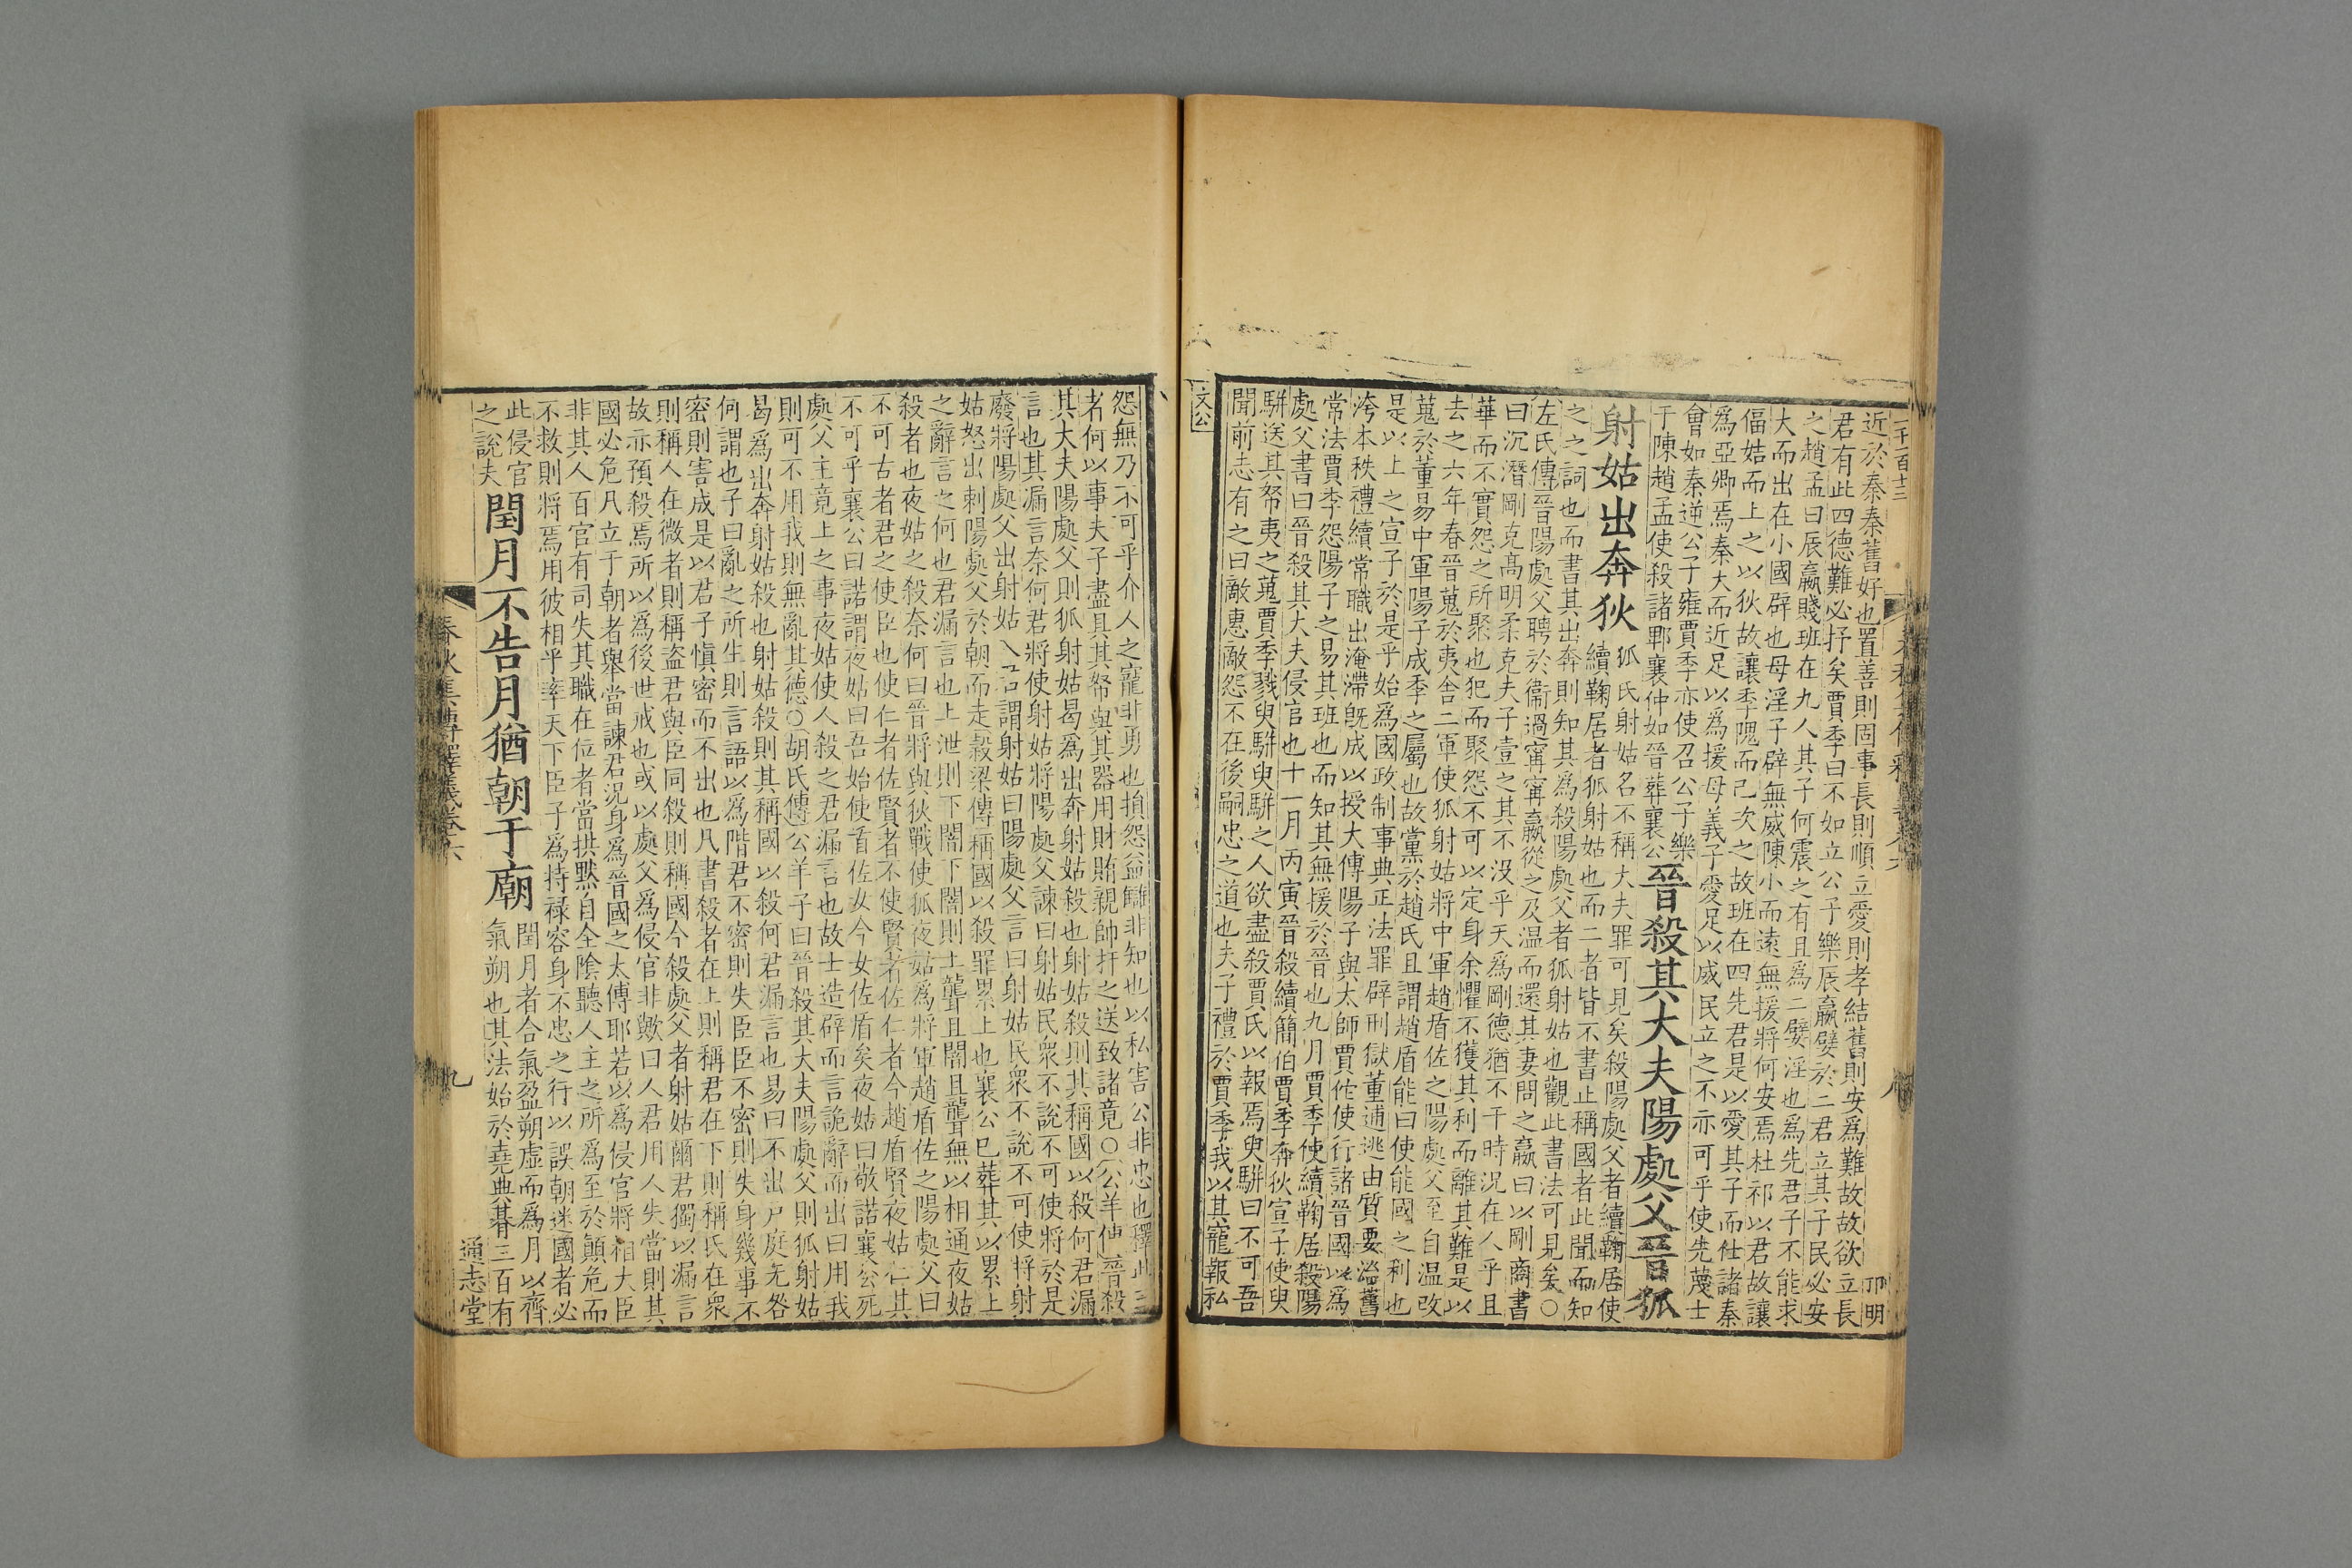 近於秦秦舊好也置善則固事長則順立愛則孝結舊則安爲難故故欲立長
君有此四德難必抒矣賈季曰不如立公子樂辰嬴嬖於二君立其子民必安
之趙孟曰辰嬴賤班在九人其子何震之有且爲二嬖淫也爲先君子不能求
大而出在小國辟也母淫子辟無威陳小而遠無援將何安焉杜祁以君故讓
偪姞而上之以狄故讓季隗而己次之故班在四先君是以愛其子而仕諸秦
爲亞卿焉秦大而近足以爲援母義子愛足以威民立之不亦可乎使先蔑士
會如秦逆公子雍賈季亦使召公子樂
于陳趙孟使殺諸郫襄仲如晉葬襄公
晉殺其大夫陽處父晉狐
射姑出奔狄
狐氏射姑名不稱大夫罪可見矣殺陽處父者續鞫居使
續鞫居者狐射姑也而二者皆不書止稱國者此聞而知
之之詞也而書其出奔則知其爲殺陽處父者狐射姑也觀此書法可見矣○
左氏傳晉陽處父聘於衞過甯甯嬴從之及温而還其妻問之嬴曰以剛商書
曰沉潛剛克高明柔克夫子壹之其不没乎天爲剛德猶不干時況在人乎且
華而不實怨之所聚也犯而聚怨不可以定身余懼不獲其利而離其難是以
去之六年春晉蒐於夷舍二軍使狐射姑將中軍趙盾佐之陽處父至自温改
蒐於董易中軍陽子成季之屬也故黨於趙氏且謂趙盾能曰使能國之利也
是以上之宣子於是乎始爲國政制事典正法罪辟刑獄董逋逃由質要治舊
洿本秩禮續常職出淹滯既成以授大傅陽子與太師賈佗使行諸晉國以爲
常法賈季怨陽子之易其班也而知其無援於晉也九月賈季使續鞫居殺陽
處父書曰晉殺其大夫侵官也十一月丙寅晉殺續簡伯賈季奔狄宣子使臾
駢送其帑夷之蒐賈季戮臾駢臾駢之人欲盡殺賈氏以報焉臾駢曰不可吾
聞前志有之曰敵惠敵怨不在後嗣忠之道也夫子禮於賈季我以其寵報私
文公
怨無乃不可乎介人之寵非勇也損怨益讎非知也以私害公非忠也釋此三
者何以事夫子盡具其帑與其器用財賄親帥扞之送致諸竟○公羊傳晉殺
其大夫陽處父則狐射姑曷爲出奔射姑殺也射姑殺則其稱國以殺何君漏
言也其漏言奈何君將使射姑將陽處父諫曰射姑民衆不説不可使將於是
廢將陽處父出射姑入君謂射姑曰陽處父言曰射姑民衆不説不可使將射
姑怒出刺陽處父於朝而走穀梁傳稱國以殺罪累上也襄公已葬其以累上
之辭言之何也君漏言也上泄則下闇下闇則上聾且闇且聾無以相通夜姑
殺者也夜姑之殺奈何曰晉將與狄戰使狐夜姑爲將軍趙盾佐之陽處父曰
不可古者君之使臣也使仁者佐賢者不使賢者佐仁者今趙盾賢夜姑仁其
不可乎襄公曰諾謂夜姑曰吾始使盾佐女今女佐盾矣夜姑曰敬諾襄公死
處父主竟上之事夜姑使人殺之君漏言也故士造辟而言詭辭而出曰用我
則可不用我則無亂其德○胡氏傳公羊子曰晉殺其大夫陽處父則狐射姑
曷爲出奔射姑殺也射姑殺則其稱國以殺何君漏言也易曰不出户庭无咎
何謂也子曰亂之所生則言語以爲階君不密則失臣臣不密則失身幾事不
密則害成是以君子慎密而不出也凡書殺者在上則稱君在下則稱氏在衆
則稱人在微者則稱盗君與臣同殺則稱國今殺處父者射姑爾君獨以漏言
故亦預殺焉所以爲後世戒也或以處父爲侵官非歟曰人君用人失當則其
國必危凡立于朝者舉當諫君況身爲晉國之太傅耶若以爲侵官將相大臣
非其人百官有司失其職在位者當拱默自全陰聽人主之所爲至於顛危而
不救則將焉用彼相乎率天下臣子爲持禄容身不忠之行以誤朝迷國者必
此侵官
之説夫
閏月不告月猶朝于廟
閏月者合氣盈朔虚而爲月以齊
氣朔也其法始於堯典朞三百有
春秋集傳釋義卷六
九
通志堂